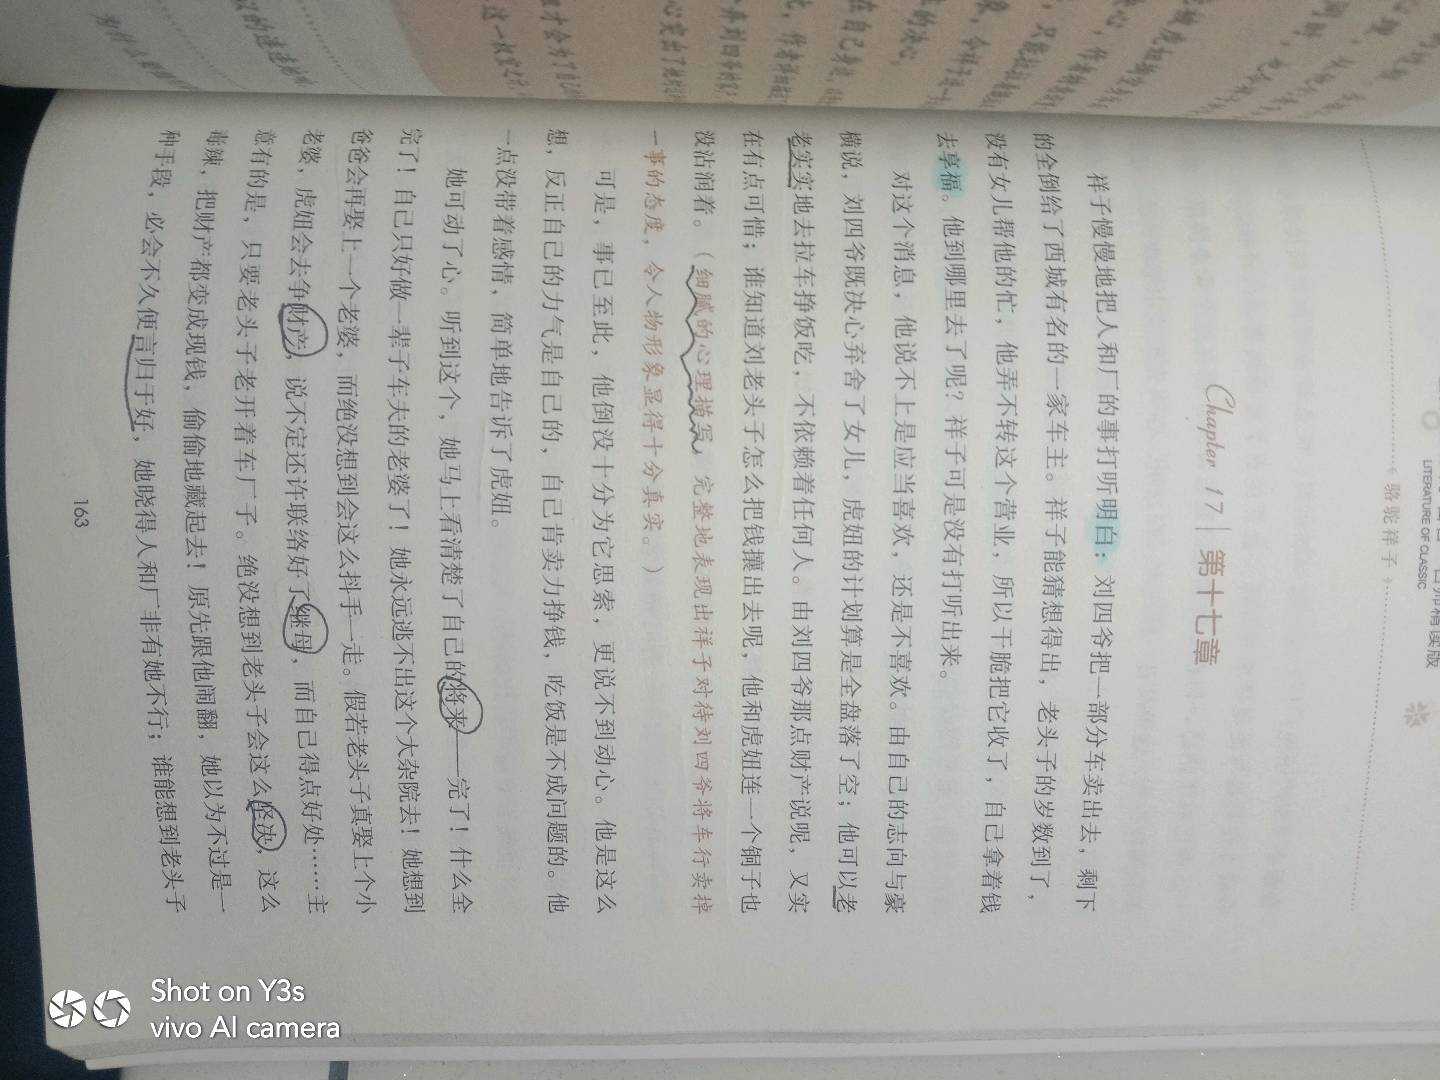 LITERATURE OF CLASSIC
骆驼祥子
Chapter 17 | 第十七章
祥子慢慢地把人和厂的事打听明白：刘四爷把一部分车卖出去，剩下
的全倒给了西城有名的一家车主。祥子能猜想得出，老头子的岁数到了，
没有女儿帮他的忙，他弄不转这个营业，所以干脆把它收了，自己拿着钱
去享福。他到哪里去了呢？祥子可是没有打听出来。
对这个消息，他说不上是应当喜欢，还是不喜欢。由自己的志向与豪
横说，刘四爷既决心弃舍了女儿，虎妞的计划算是全盘落了空；他可以老
老实实地去拉车挣饭吃，不依赖着任何人。由刘四爷那点财产说呢，又实
在有点可惜；谁知道刘老头子怎么把钱攘出去呢，他和虎妞连一个铜子也
没沾润着。（细腻的心理描写，完整地表现出祥子对待刘四爷将车行卖掉
一事的态度，令人物形象显得十分真实。）
可是，事已至此，他倒没十分为它思索，更说不到动心。他是这么
想，反正自己的力气是自己的，自己肯卖力挣钱，吃饭是不成问题的。他
一点没带着感情，简单地告诉了虎妞。
她可动了心。听到这个，她马上看清楚了自己的将来——完了！什么全
完了！自己只好做一辈子车夫的老婆了！她永远逃不出这个大杂院去！她想到
爸爸会再娶上一个老婆，而绝没想到会这么抖手一走。假若老头子真娶上个小
老婆，虎妞会去争财产，说不定还许联络好了继母，而自己得点好处……主
意有的是，只要老头子老开着车厂子。绝没想到老头子会这么坚决，这么
毒辣，把财产都变成现钱，偷偷地藏起去！原先跟他闹翻，她以为不过是一
种手段，必会不久便言归于好，她晓得人和厂非有她不行；谁能想到老头子
163
Shot on Y3s
vivo AI camera